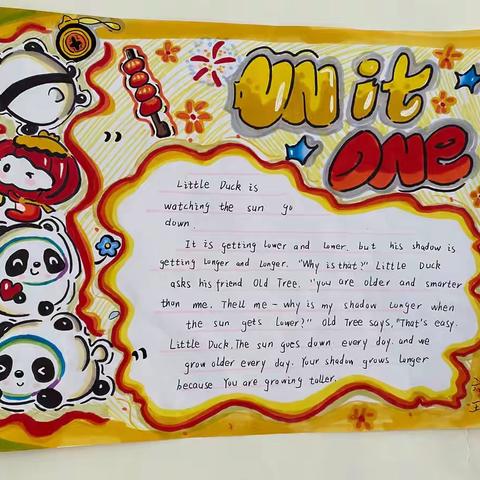 UNit
ONE
Little Duck is
watching the sun go
down.
It is getting lower and lower. but his shadow is
getting longer and longer. "Why is that?" Little Duck
asks his friend Old Tree. "you are older and smarter
than me. Thell me - why is my shadow longer when
the sun gets lower?" Old Tree says, "That's easy.
Little Duck. The sun goes down every day. and we
grow older every day. Your shadow grows longer
because You are growing taller.